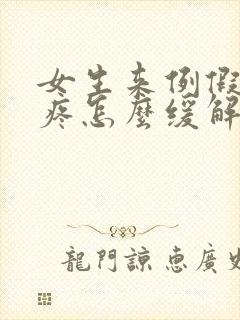 女生来例假
疼怎麼缓解
龍門諒惠廣